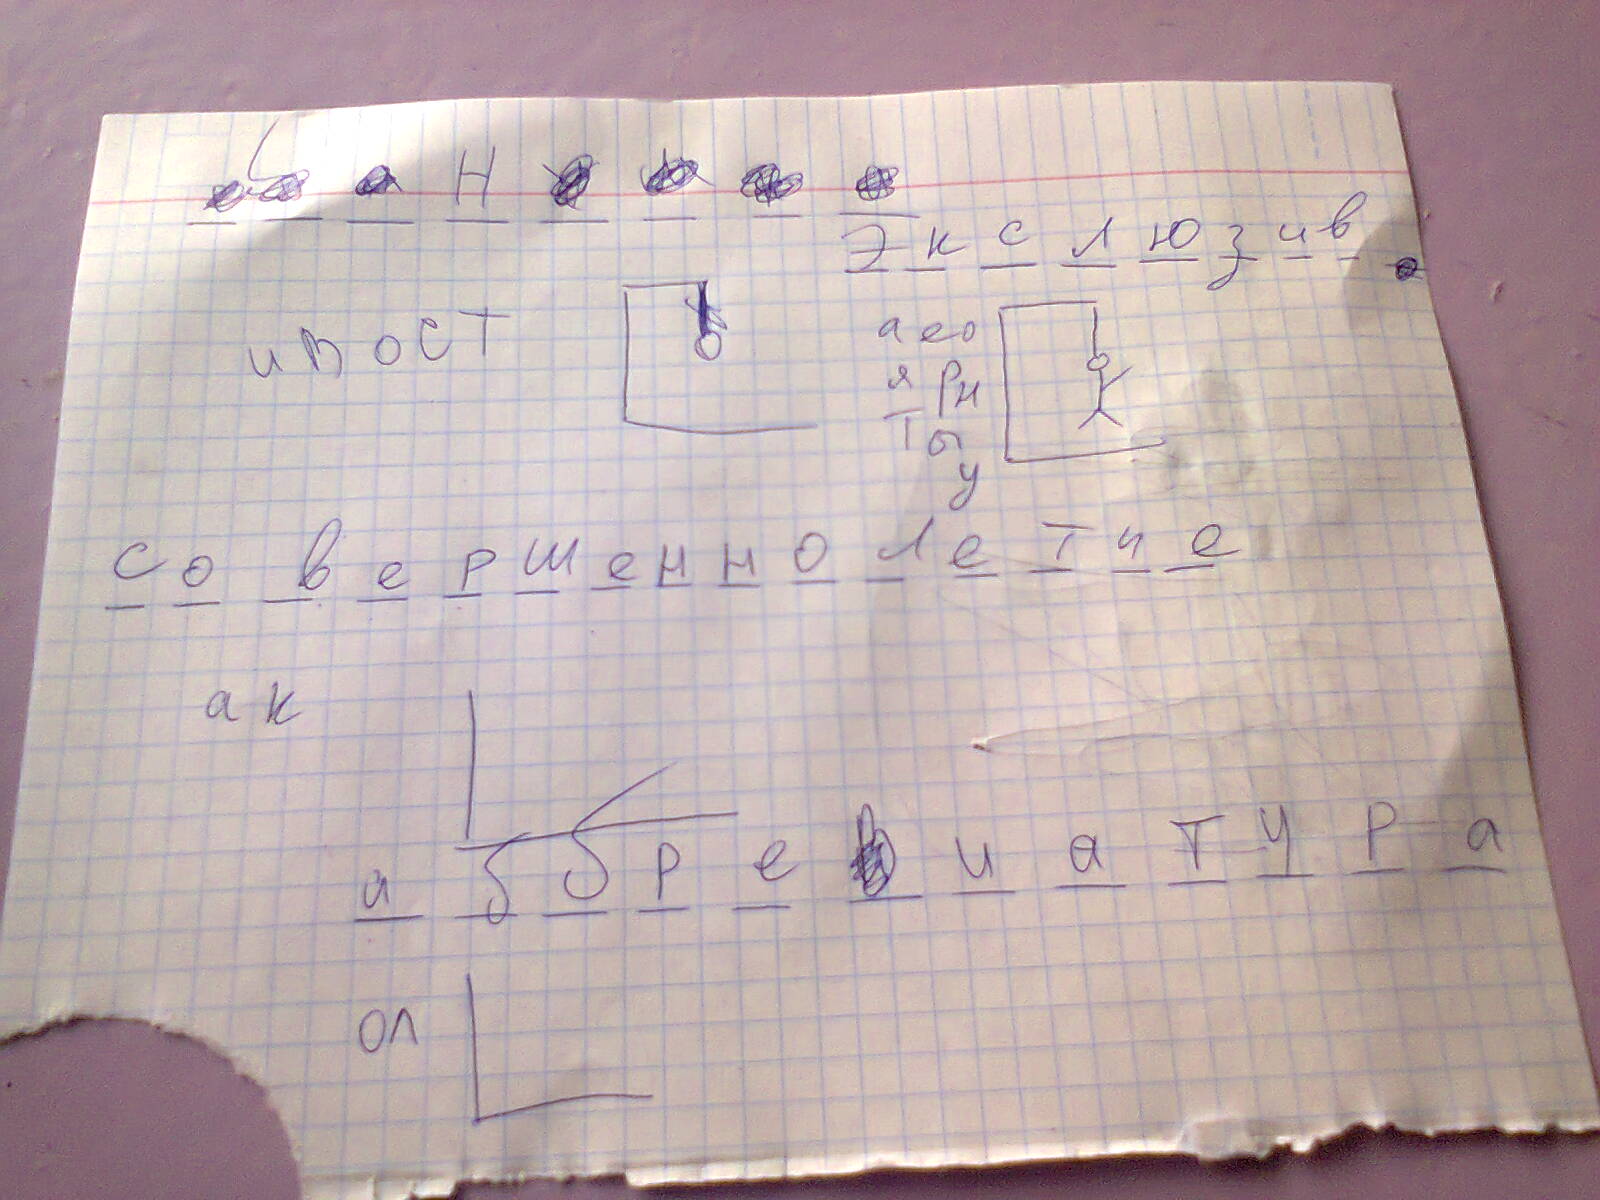 Н
Э к с л ю з и в
и в о с т
а е о
я р н
т ы
у
с о в е р ш е н н о л е т и е
а к
а б б р е в и а т у р а
о л